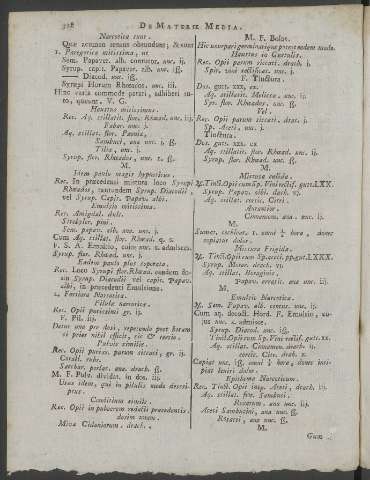 328 DE MATERIE MEDIA.
Narcotica sunt.
Quæ sensum sensim obtundunt; & sunt
1. Paregorica mitissima, ut
Sem. Papaver. alb. contusor. unc. ij.
Syrup. capit. Papaver. alb. unc. iſſ.
Diacod. unc. iſſ.
Syrupi Florum Rhœados, unc. iij.
Hinc varia commode parari, adhiberi
to, queunt, V. G.
Haustus mitissimus.
Rec. Aq. stillatit. flor. Rhœad. unc. iij.
Fabar. unc. j.
Aq. stillat. flor. Pæonia,
Sambuci ana unc. j. ſſ.
Tilia, unc. j.
Syrup. flor. Rhœados, unc. 1. ſſ.
M.
Idem paulo magis hypnoticus.
Rec. In præcedenti mixtura loco Syrupi
Rhœados, tantundem Syrup. Diacodii,
vel Syrup. Capit. Papav. albi.
Emulsio mitissima.
Rec. Amigdal. dulc.
Sem. papav. alb. ana unc. j.
Cum Aq. stillat. flor. Rhœad. q. s.
F. S. A. Emulsio, cum unc. x. adulsces.
Syrup. flor. Rhœad. unc. j.
Eadem paulo plus soporata.
Rec. Loco Syrupi flor. Rhœad. eandem
Syrup. Diacodii vel capit. Papav.
albi, in præcedenti Emulsione.
2. Fortiora Narcotica.
Pilula narcotica.
Rec. Opii purissimi gr. ij.
F. Pil. iij.
Detur una pro dosi, repetendo post horam
si prior nihil effecit, sic & tertia.
Pulvis similis.
Rec. Opii purior. puram siccati, gr. ij.
Corall. rubr.
Sacchar. perlat. ana drach. ſſ.
M. F. Pulv. dividat. in dos. iij.
Usus idem, qui in pilulis modo descri-
ptus.
Conditum simile.
Rec. Opii in pulverem redacti præcedentis.
dosim unam.
Miva Cidoniorum, drach. j.
M. F. Bolus.
Hic usurpari germinatique præcedenti modo.
Haustus ex Gutulis.
Rec. Opii parum siccati, drach. j.
Spir. vini rectificat. unc. j.
F. Tinctura.
Det. gutt. xxx, ex
Aq. stillatit. Melissæ unc. ij.
Syr. flor. Rhœados, unc. ſſ.
Vel.
Rec. Opii parum siccati, drach. j.
Sp. Aceti, unc. j.
Tinctura.
Det. gutt. xxx. ex
Aq. stillat. flor. Rhœad. unc. ij.
Syrup. flor. Rhœad. unc. ſſ.
M.
Mixtura calida.
Tinct. Opii cum Sp. Vini rectif. gutt. LXX.
Syrup. Papav. albi. drach. vj.
Aq. stillat. cortic. Citri.
Aurantior.
Cinnamom. ana unc. iij.
M.
Sumet cochlear. 1. omni ¼ hora, donec
copiatur dolor.
Mixtura Frigida.
Tinct. Opii cum Sp. aceti, pp. gutt. LXXX.
Syrup. drach. vj.
Aq. stillat. Boraginis,
Papav. erratic. ana unc. iij.
M.
Emulsio Narcotica.
Sem. Papav. alb. contus. unc. ij.
Cum aq. decoct. Hord. F. Emulsio, cu-
jus unc. x. admisce.
Syrup. Diacod. unc. iſſ.
Tinct. Opii cum Sp. Vini rectif. gutt. xx.
Aq. stillat. Cinnamom. drach.
cortic. Citr. drach. x.
Capiat unc. iſſ. omni ¼ hora, donec inci-
piat leniri dolor.
Epithema Narcoticum.
Rec. Tinct. Opii Aceti, drach. iij.
Aq. stillat. flor. Sambuci.
Rosarum, ana unc. iij.
Aceti Sambucini, ana unc. ſſ.
Rsacei, ana unc. ſſ.
M.
Gum